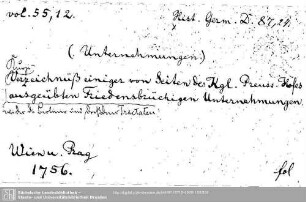 vol. 55, 12.
Hist. Germ. D. 87, 29.
(Unternehmungen)
Kurz
Verzeichnuß einiger von Seiten des Kgl. Preuss. Hofes
ausgeübten Friedensbrüchigen Unternehmungen
wieder die Breslauer und Dreßdner Tractaten
Wien u. Prag
1756.
fol
Sächsische Landesbibliothek –
Staats- und Universitätsbibliothek Dresden